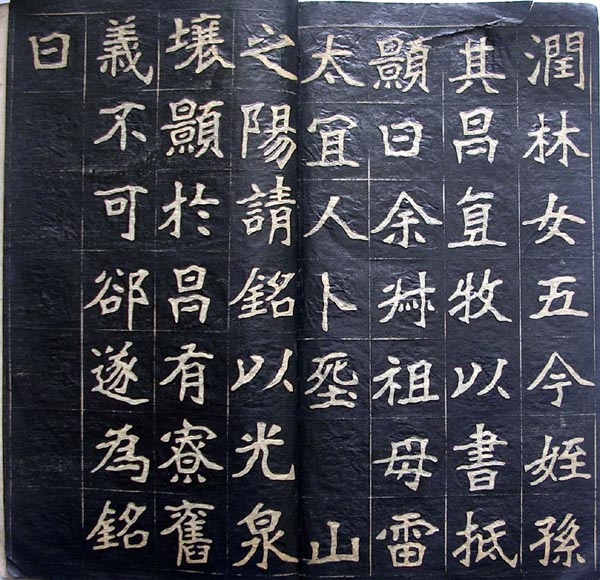 潤林女五今姪孫
其昌直牧以書抵
顥曰余叔祖母雷
太宜人卜葬山
之陽請銘以光泉
壤顥於昌有寮舊
義不可卻遂為銘
曰